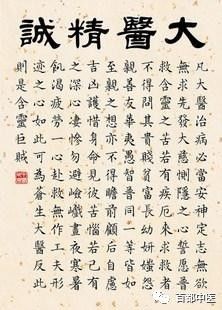 大醫精誠
凡大醫治病必當安神定志無欲
無求先發大慈惻隱之心誓愿普
救含靈之苦若有疾厄來求救者
不得問其貴賤貧富長幼妍媸怨
親善友華夷愚智普同一等皆如
至親之想亦不得瞻前顧后自慮
吉凶護惜身命見彼苦惱若己有
之深心悽愴勿避嶮巇晝夜寒暑
飢渴疲勞一心赴救無作工夫形
迹之心如此可為蒼生大醫反此
則是含靈巨賊
首都中医